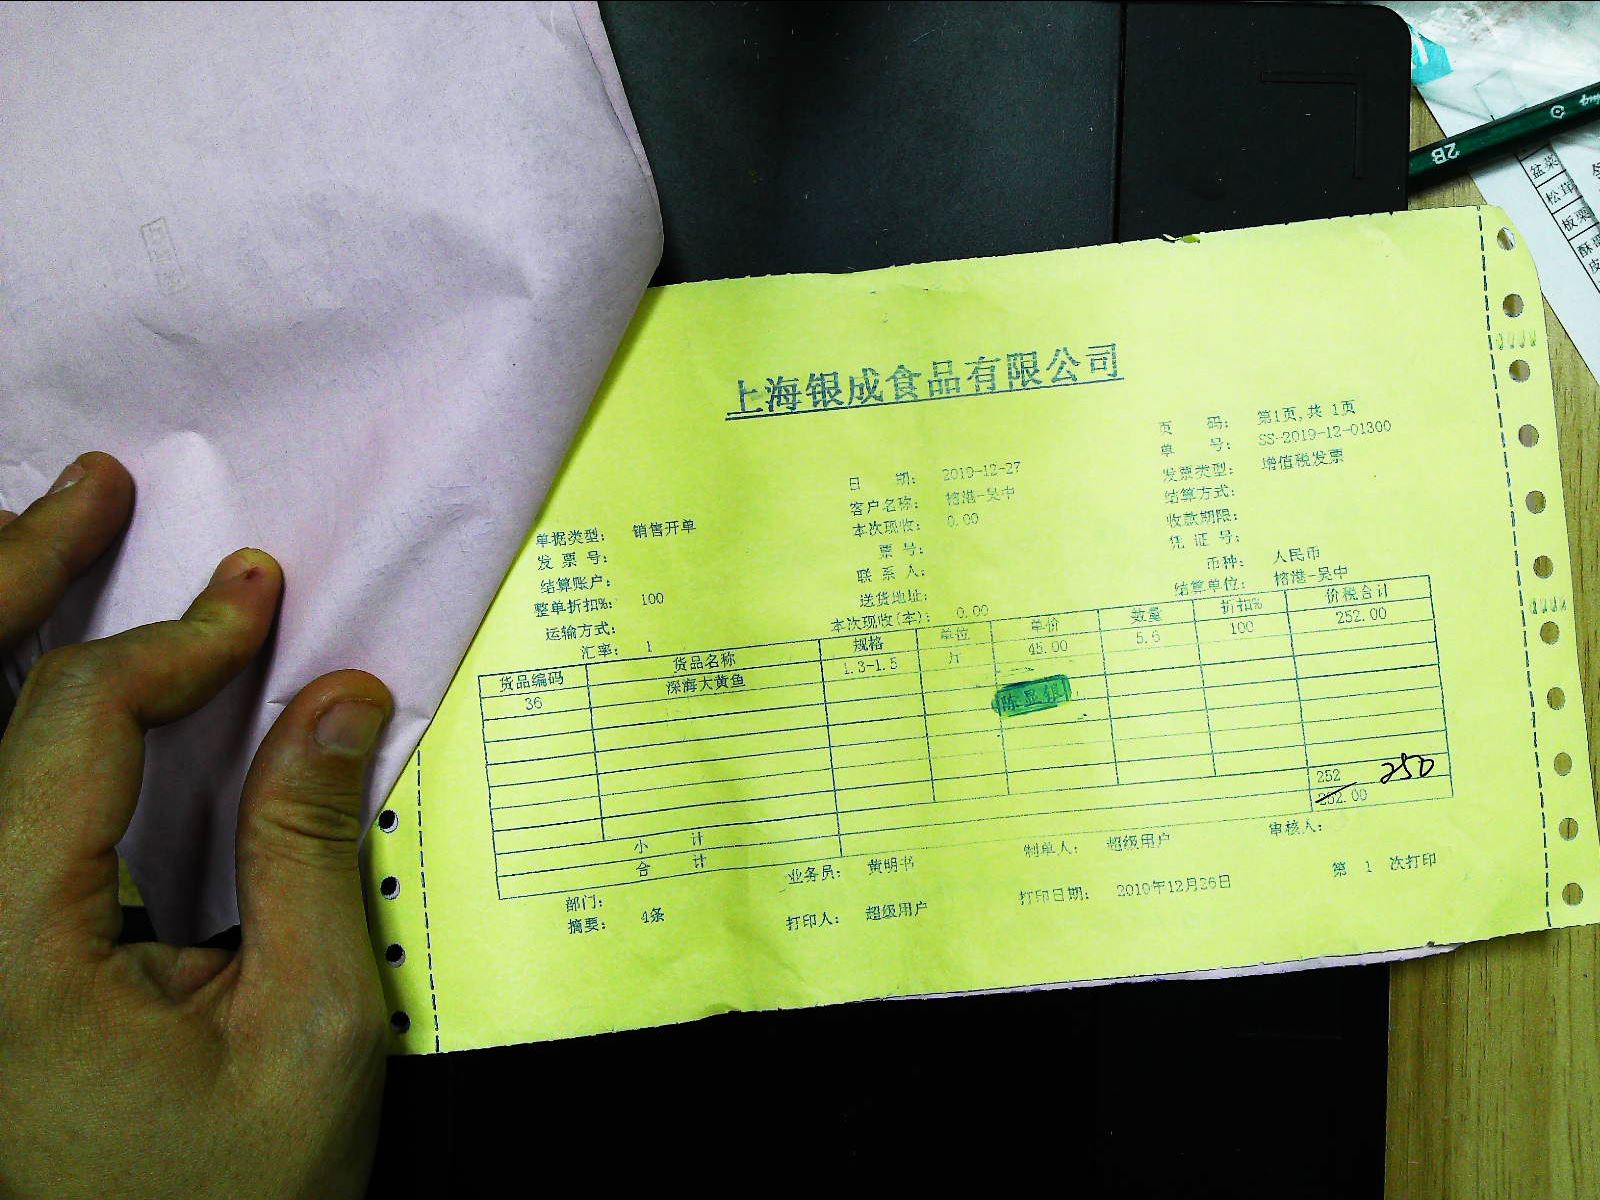 上海银成食品有限公司
页 码： 第1页，共 1页
单 号： SS-2019-12-01300
日 期： 2019-12-27
发票类型： 增值税发票
客户名称： 榕港-吴中
结算方式：
单据类型： 销售开单
本次现收： 0.00
收款期限：
发 票 号：
票号：
凭 证 号：
结算账户：
联 系 人：
币种： 人民币
整单折扣%： 100
送货地址：
结算单位： 榕港-吴中
运输方式：
本次现收(本)： 0.00
汇率： 1
货品编码 货品名称 规格 单位 单价 数量 折扣% 价税合计
36 深海大黄鱼 1.3-1.5 斤 45.00 5.6 100 252.00
陈显银
小 计 252
合 计 252.00 250
部门： 业务员： 黄明书 制单人： 超级用户 审核人：
摘要： 4条 打印人： 超级用户 打印日期： 2019年12月26日 第 1 次打印
2B
盆菜
松茸
板栗